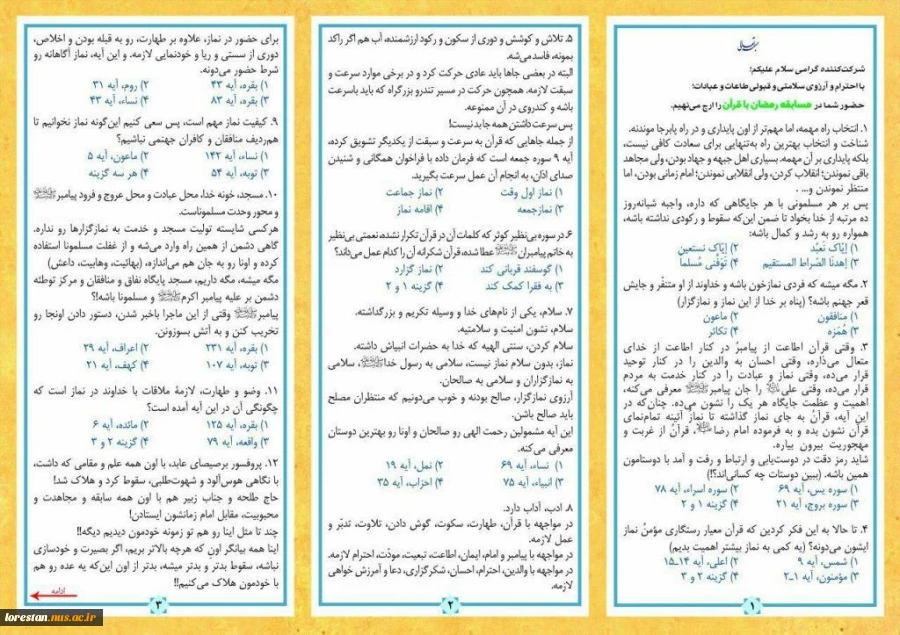 بسمه تعالی
شرکت‌کننده گرامی سلام علیکم؛
با احترام و آرزوی سلامتی و قبولی طاعات و عبادات؛
حضور شما در مسابقه رمضان با قرآن را ارج می‌نهیم.
۱. انتخاب راه مهمه، اما مهم‌تر از اون پایداری و در راه پابرجا موندنه.
شناخت و انتخاب بهترین راه به‌تنهایی برای سعادت کافی نیست،
بلکه پایداری بر آن مهمه. بسیاری اهل جبهه و جهاد بودن، ولی مجاهد
باقی نموندن؛ انقلاب کردن، ولی انقلابی نموندن؛ امام زمانی بودن، اما
منتظر نموندن و... .
پس بر هر مسلمونی با هر جایگاهی که داره، واجبه شبانه‌روز
ده مرتبه از خدا بخواد تا ضمن این‌که سقوط و رکودی نداشته باشه،
همواره رو به رشد و کمال باشه:
۱) إیّاک نَعبُد ۲) إیّاک نستعین
۳) إهدنَا الصّراط المستقیم ۴) تَوَفَّنی مُسلماً
۲. مگه میشه که فردی نمازخون باشه و خداوند از او متنفّر و جایش
قعر جهنم باشه؟ (پناه بر خدا از این نماز و نمازگزار)
۱) منافقون ۲) ماعون
۳) هُمَزه ۴) تکاثر
۳. وقتی قرآن اطاعت از پیامبرُ در کنار اطاعت از خدای
متعال می‌ذاره، وقتی احسان به والدین را در کنار توحید
قرار می‌ده، وقتی نماز و عبادت را در کنار خدمت به مردم
قرار می‌ده، وقتی علی را جان پیامبر معرفی می‌کنه،
اهمیت و عظمت جایگاه هر یک را نشون می‌ده. چنان‌که در
این آیه، قرآنُ به جای نماز گذاشته تا نماز آئینه تمام‌نمای
قرآن نشون بده و به فرموده امام رضا، قرآن از غربت و
مهجوریت بیرون بیاره.
شاید رمز دقت در دوست‌یابی و ارتباط و رفت و آمد با دوستامون
همین باشه. (ببین دوستات چه کسانی‌اند؟!)
۱) سوره یس، آیه ۶۹ ۲) سوره اسراء، آیه ۷۸
۳) سوره بروج، آیه ۲۱ ۴) گزینه ۱ و ۲
۴. تا حالا به این فکر کردین که قرآن معیار رستگاری مؤمنُ نماز
ایشون می‌دونه؟ (یه کمی به نماز بیشتر اهمیت بدیم)
۱) شمس، آیه ۹ ۲) اعلی، آیه ۱۴ـ۱۵
۳) مؤمنون، آیه ۱ـ۲ ۴) گزینه ۲ و ۳
۱
۵. تلاش و کوشش و دوری از سکون و رکود ارزشمنده، آب هم اگر راکد
بمونه، فاسد می‌شه.
البته در بعضی جاها باید عادی حرکت کرد و در برخی موارد سرعت و
سبقت لازمه. همچون حرکت در مسیر تندرو بزرگراه که باید باسرعت
باشه و کندروی در آن ممنوعه.
پس سرعت داشتن همه جا بد نیست!
از جمله جاهایی که قرآن به سرعت و سبقت از یکدیگر تشویق کرده،
آیه ۹ سوره جمعه است که فرمان داده با فراخوان همگانی و شنیدن
صدای اذان، به انجام آن عمل سرعت بگیرید.
۱) نماز اول وقت ۲) نماز جماعت
۳) نمازجمعه ۴) اقامه نماز
۶. در سوره بی‌نظیر کوثر که کلمات آن در قرآن تکرار نشده، نعمتی بی‌نظیر
به خاتم پیامبران عطا شده، قرآن شکرانه آن را کدام عمل می‌داند؟
۱) گوسفند قربانی کند ۲) نماز گزارد
۳) به فقرا کمک کند ۴) گزینه ۱ و ۲
۷. سلام، یکی از نام‌های خدا و وسیله تکریم و بزرگداشته.
سلام، نشون امنیت و سلامتیه.
سلام کردن، سنتی الهیه که خدا به حضرات انبیاش داشته.
نماز، بدون سلام نماز نیست، سلامی به رسول خدا، سلامی
به نمازگزاران و سلامی به صالحان.
آرزوی نمازگزار، صالح بودنه و خوب می‌دونیم که منتظران مصلح
باید صالح باشن.
این آیه مشمولین رحمت الهی رو صالحان و اونا رو بهترین دوستان
معرفی می‌کنه.
۱) نساء، آیه ۶۹ ۲) نمل، آیه ۱۹
۳) انبیاء، آیه ۷۵ ۴) احزاب، آیه ۳۵
۸. ادب، آداب داره.
در مواجهه با قرآن، طهارت، سکوت، گوش دادن، تلاوت، تدبّر و
عمل لازمه.
در مواجهه با پیامبر و امام، ایمان، اطاعت، تبعیت، مودّت، احترام لازمه.
در مواجهه با والدین، احترام، احسان، شکرگزاری، دعا و آمرزش خواهی
لازمه.
۲
برای حضور در نماز، علاوه بر طهارت، رو به قبله بودن و اخلاص،
دوری از سستی و ریا و خودنمایی لازمه. و این آیه، نماز آگاهانه رو
شرط حضور می‌دونه.
۱) بقره، آیه ۴۳ ۲) روم، آیه ۳۱
۳) بقره، آیه ۸۳ ۴) نساء، آیه ۴۳
۹. کیفیت نماز مهم است، پس سعی کنیم این‌گونه نماز نخوانیم تا
هم‌ردیف منافقان و کافران جهنمی نباشیم؟
۱) نساء، آیه ۱۴۲ ۲) ماعون، آیه ۵
۳) توبه، آیه ۵۴ ۴) هر سه گزینه
۱۰. مسجد، خونه خدا، محل عبادت و محل عروج و فرود پیامبر
و محور وحدت مسلموناست.
هرکسی شایسته تولیت مسجد و خدمت به نمازگزارها رو نداره.
گاهی دشمن از همین راه وارد می‌شه و از غفلت مسلمونا استفاده
کرده و اونا رو به جان هم می‌اندازه، (بهائیت، وهابیت، داعش)
مگه میشه، مگه داریم، مسجد پایگاه نفاق و منافقان و مرکز توطئه
دشمن بر علیه پیامبر اکرم و مسلمونا باشه!؟
پیامبر وقتی از این ماجرا باخبر شدن، دستور دادن اونجا رو
تخریب کنن و به آتش بسوزونن.
۱) بقره، آیه ۲۳۱ ۲) اعراف، آیه ۲۹
۳) توبه، آیه ۱۰۷ ۴) کهف، آیه ۲۱
۱۱. وضو و طهارت، لازمهٔ ملاقات با خداوند در نماز است که
چگونگی آن در این آیه آمده است؟
۱) بقره، آیه ۱۲۵ ۲) مائده، آیه ۶
۳) واقعه، آیه ۷۹ ۴) گزینه ۲ و ۳
۱۲. پروفسور برصیصای عابد، با اون همه علم و مقامی که داشت،
با نگاهی هوس‌آلود و شهوت‌طلبی، سقوط کرد و هلاک شد!
حاج طلحه و جناب زبیر هم با اون همه سابقه و مجاهدت و
محبوبیت، مقابل امام زمانشون ایستادن!
چند تا مثل اینا رو هم تو زمونه خودمون دیدیم دیگه!!
اینا همه بیانگر اون که هرچه بالاتر بریم، اگر بصیرت و خودسازی
نباشه، سقوط بدتر و بدتر میشه، بدتر از اون این‌که یه عده رو هم
با خودمون هلاک می‌کنیم!!
ادامه
۳
lorestan.nus.ac.ir